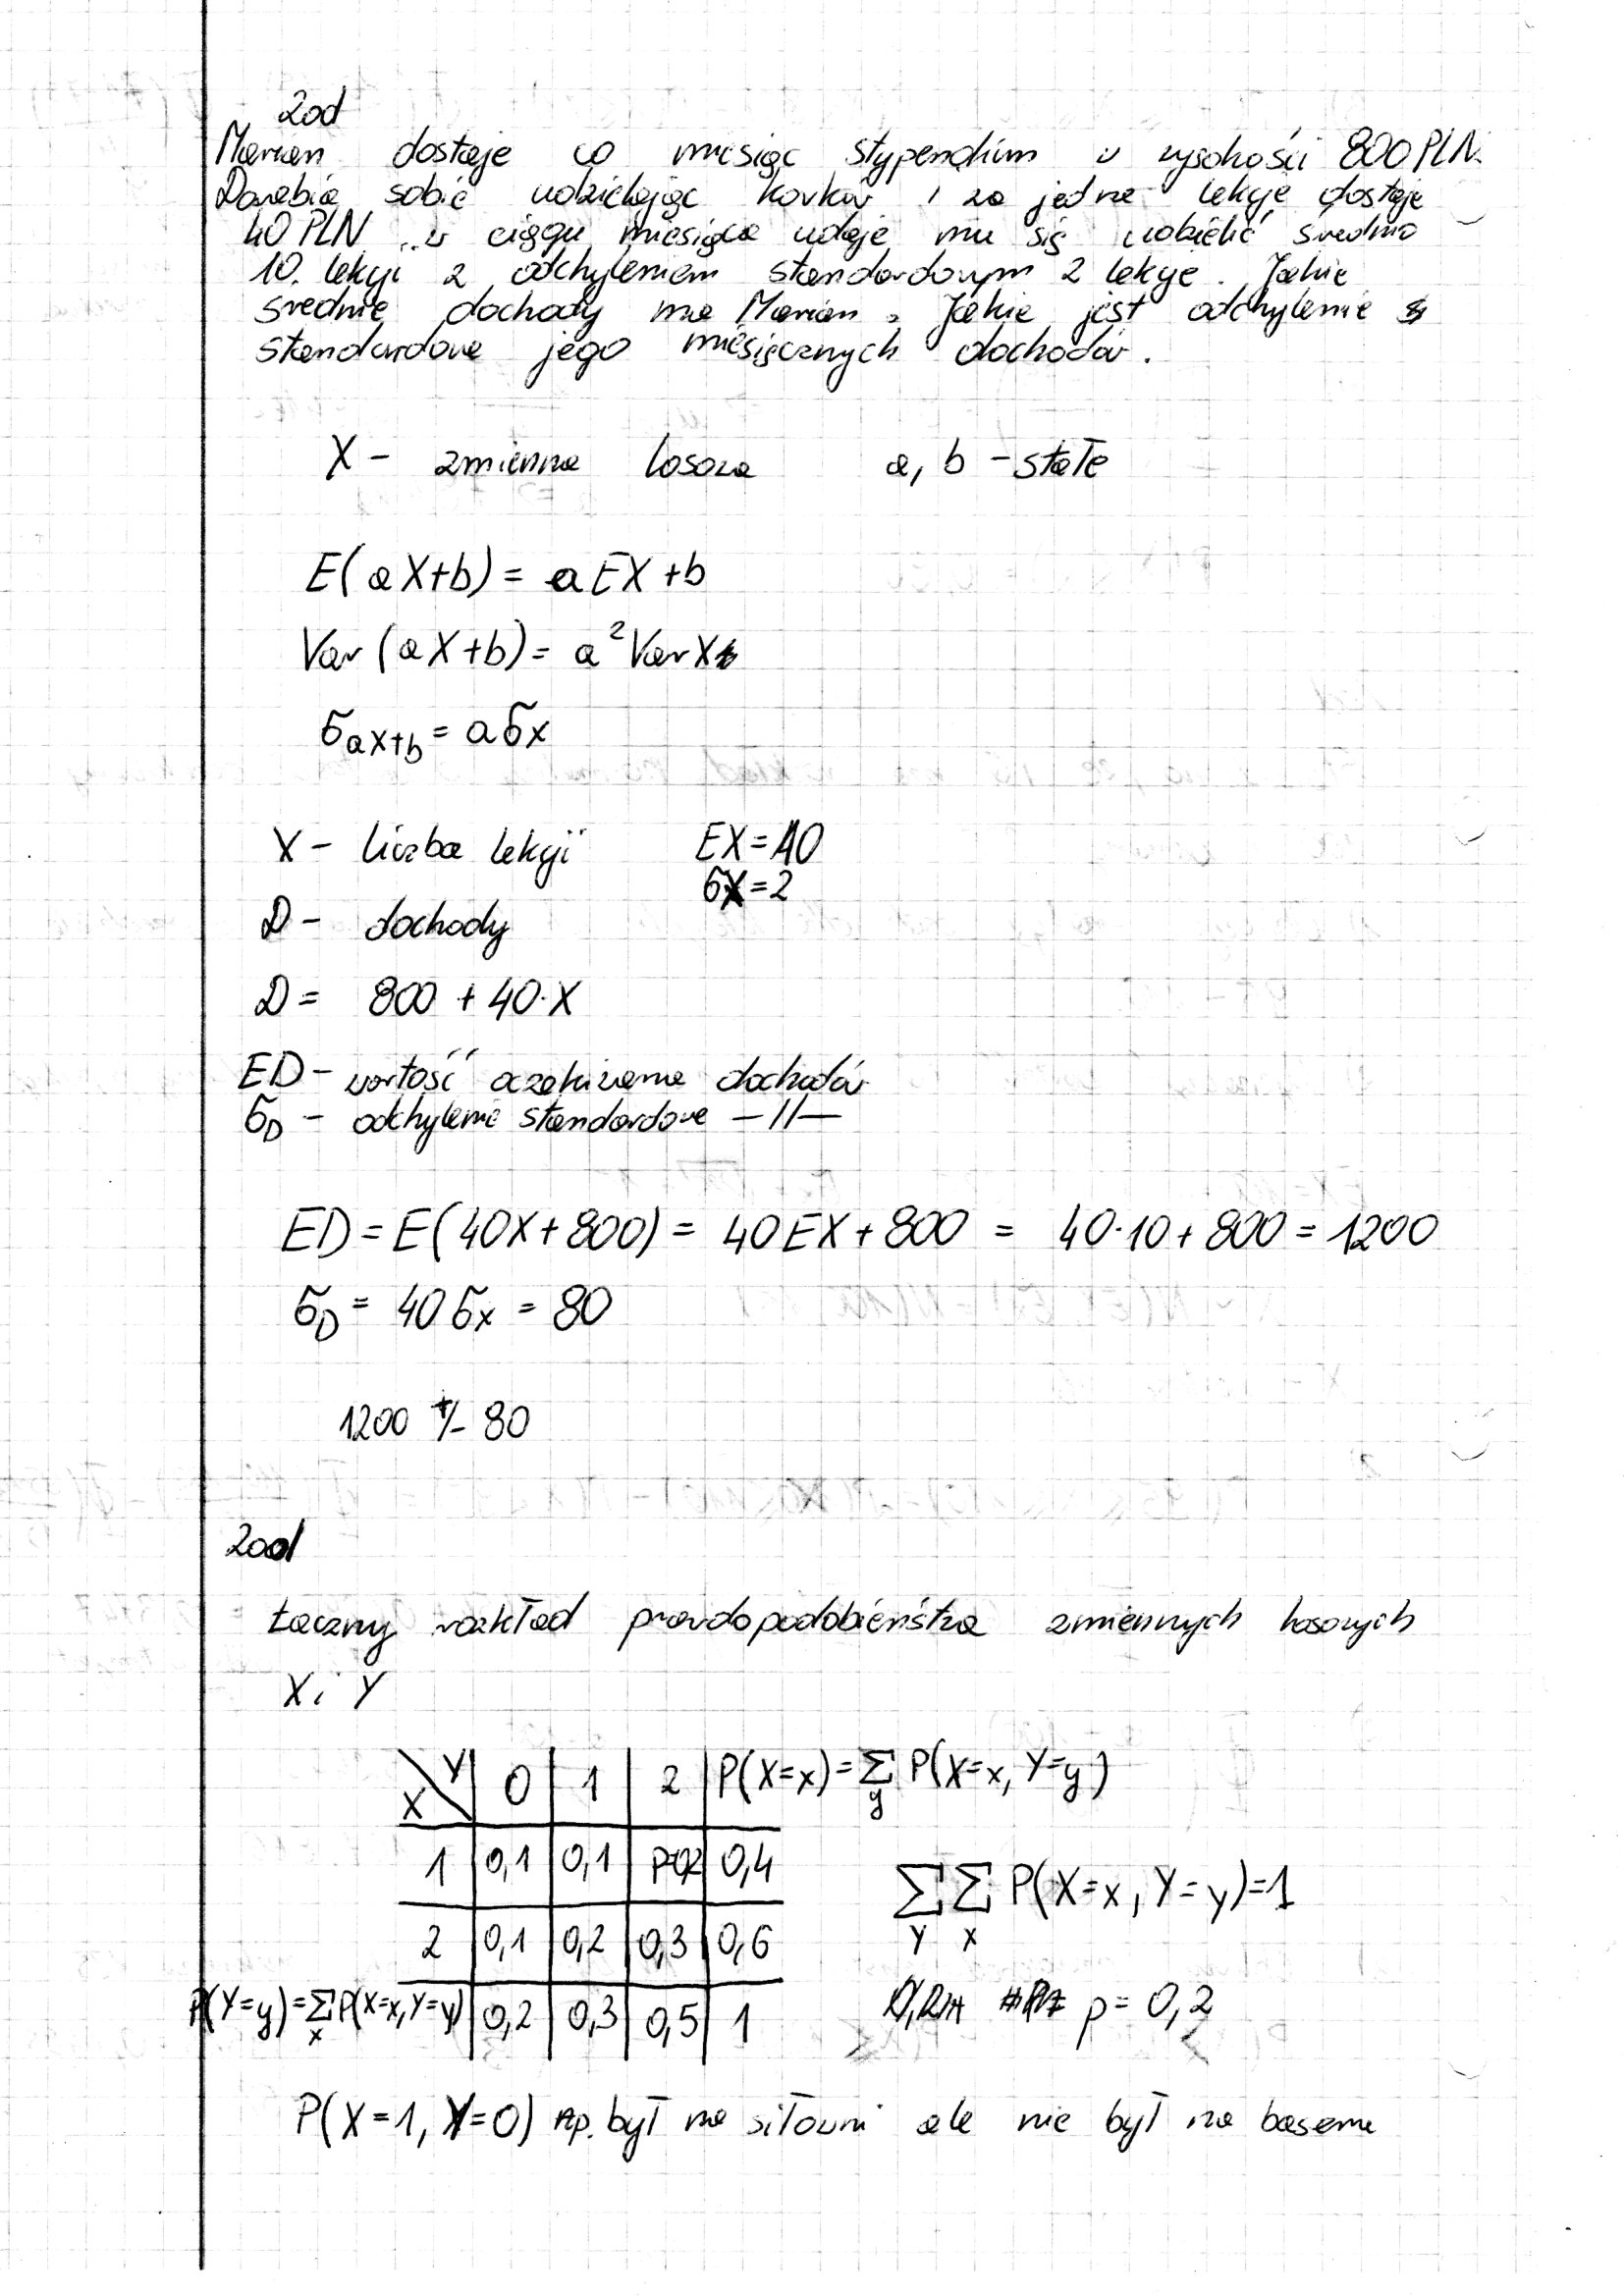 Zad
Marian dostaje co miesiąc stypendium w wysokości 800 PLN.
Dorabia sobie udzielając korków i za jedną lekcję dostaje
40 PLN. w ciągu miesiąca udaje mu się udzielić średnio
10. lekcji z odchyleniem standardowym 2 lekcje. Jakie
średnie dochody ma Marian. Jakie jest odchylenie
standardowe jego miesięcznych dochodów.
X - zmienna losowa a, b - stałe
E(aX+b) = aEX + b
Var(aX+b) = a² VarX
σ_{aX+b} = aσx
X - liczba lekcji EX = 10
σX = 2
D - dochody
D = 800 + 40·X
ED - wartość oczekiwana dochodów
σ_D - odchylenie standardowe —||—
ED = E(40X+800) = 40EX + 800 = 40·10 + 800 = 1200
σ_D = 40σx = 80
1200 +/- 80
Zad
Łączny rozkład prawdopodobieństwa zmiennych losowych
X i Y
X \ Y | 0 | 1 | 2 | P(X=x) = Σ_y P(X=x, Y=y)
1 | 0,1 | 0,1 | | 0,4
Σ_Y Σ_X P(X=x, Y=y) = 1
2 | 0,1 | 0,2 | 0,3 | 0,6
P(Y=y) = Σ_x P(X=x, Y=y) | 0,2 | 0,3 | 0,5 | 1
p = 0,2
P(X=1, Y=0) np. był na siłowni ale nie był na basenie